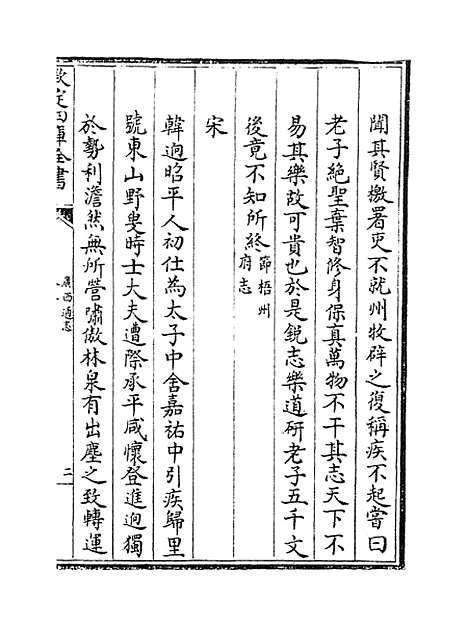 聞其賢檄署吏不就州牧辟之復稱疾不起嘗曰
老子絶聖棄智修身保真萬物不干其志天下不
易其樂故可貴也於是鋭志樂道研老子五千文
後竟不知所終節梧州府志
宋
韓逈昭平人初仕為太子中舍嘉祐中引疾歸里
號東山野叟時士大夫遭際承平咸懷登進逈獨
於勢利澹然無所營嘯傲林泉有出塵之致轉運
欽定四庫全書
廣西通志
二